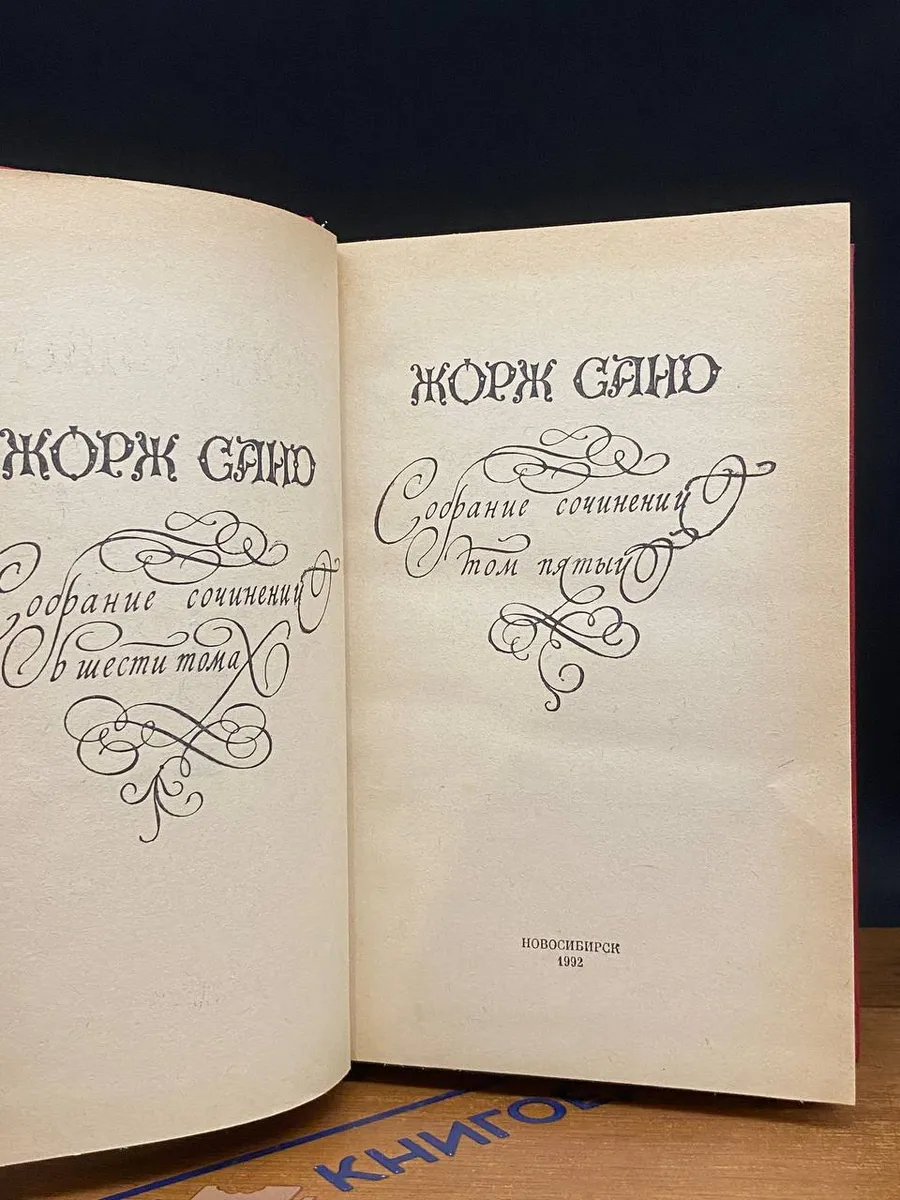 ЖОРЖ САНД
Собрание сочинений
в шести томах
ЖОРЖ САНД
Собрание сочинений
том пятый
НОВОСИБИРСК
1992
КНИГОВ